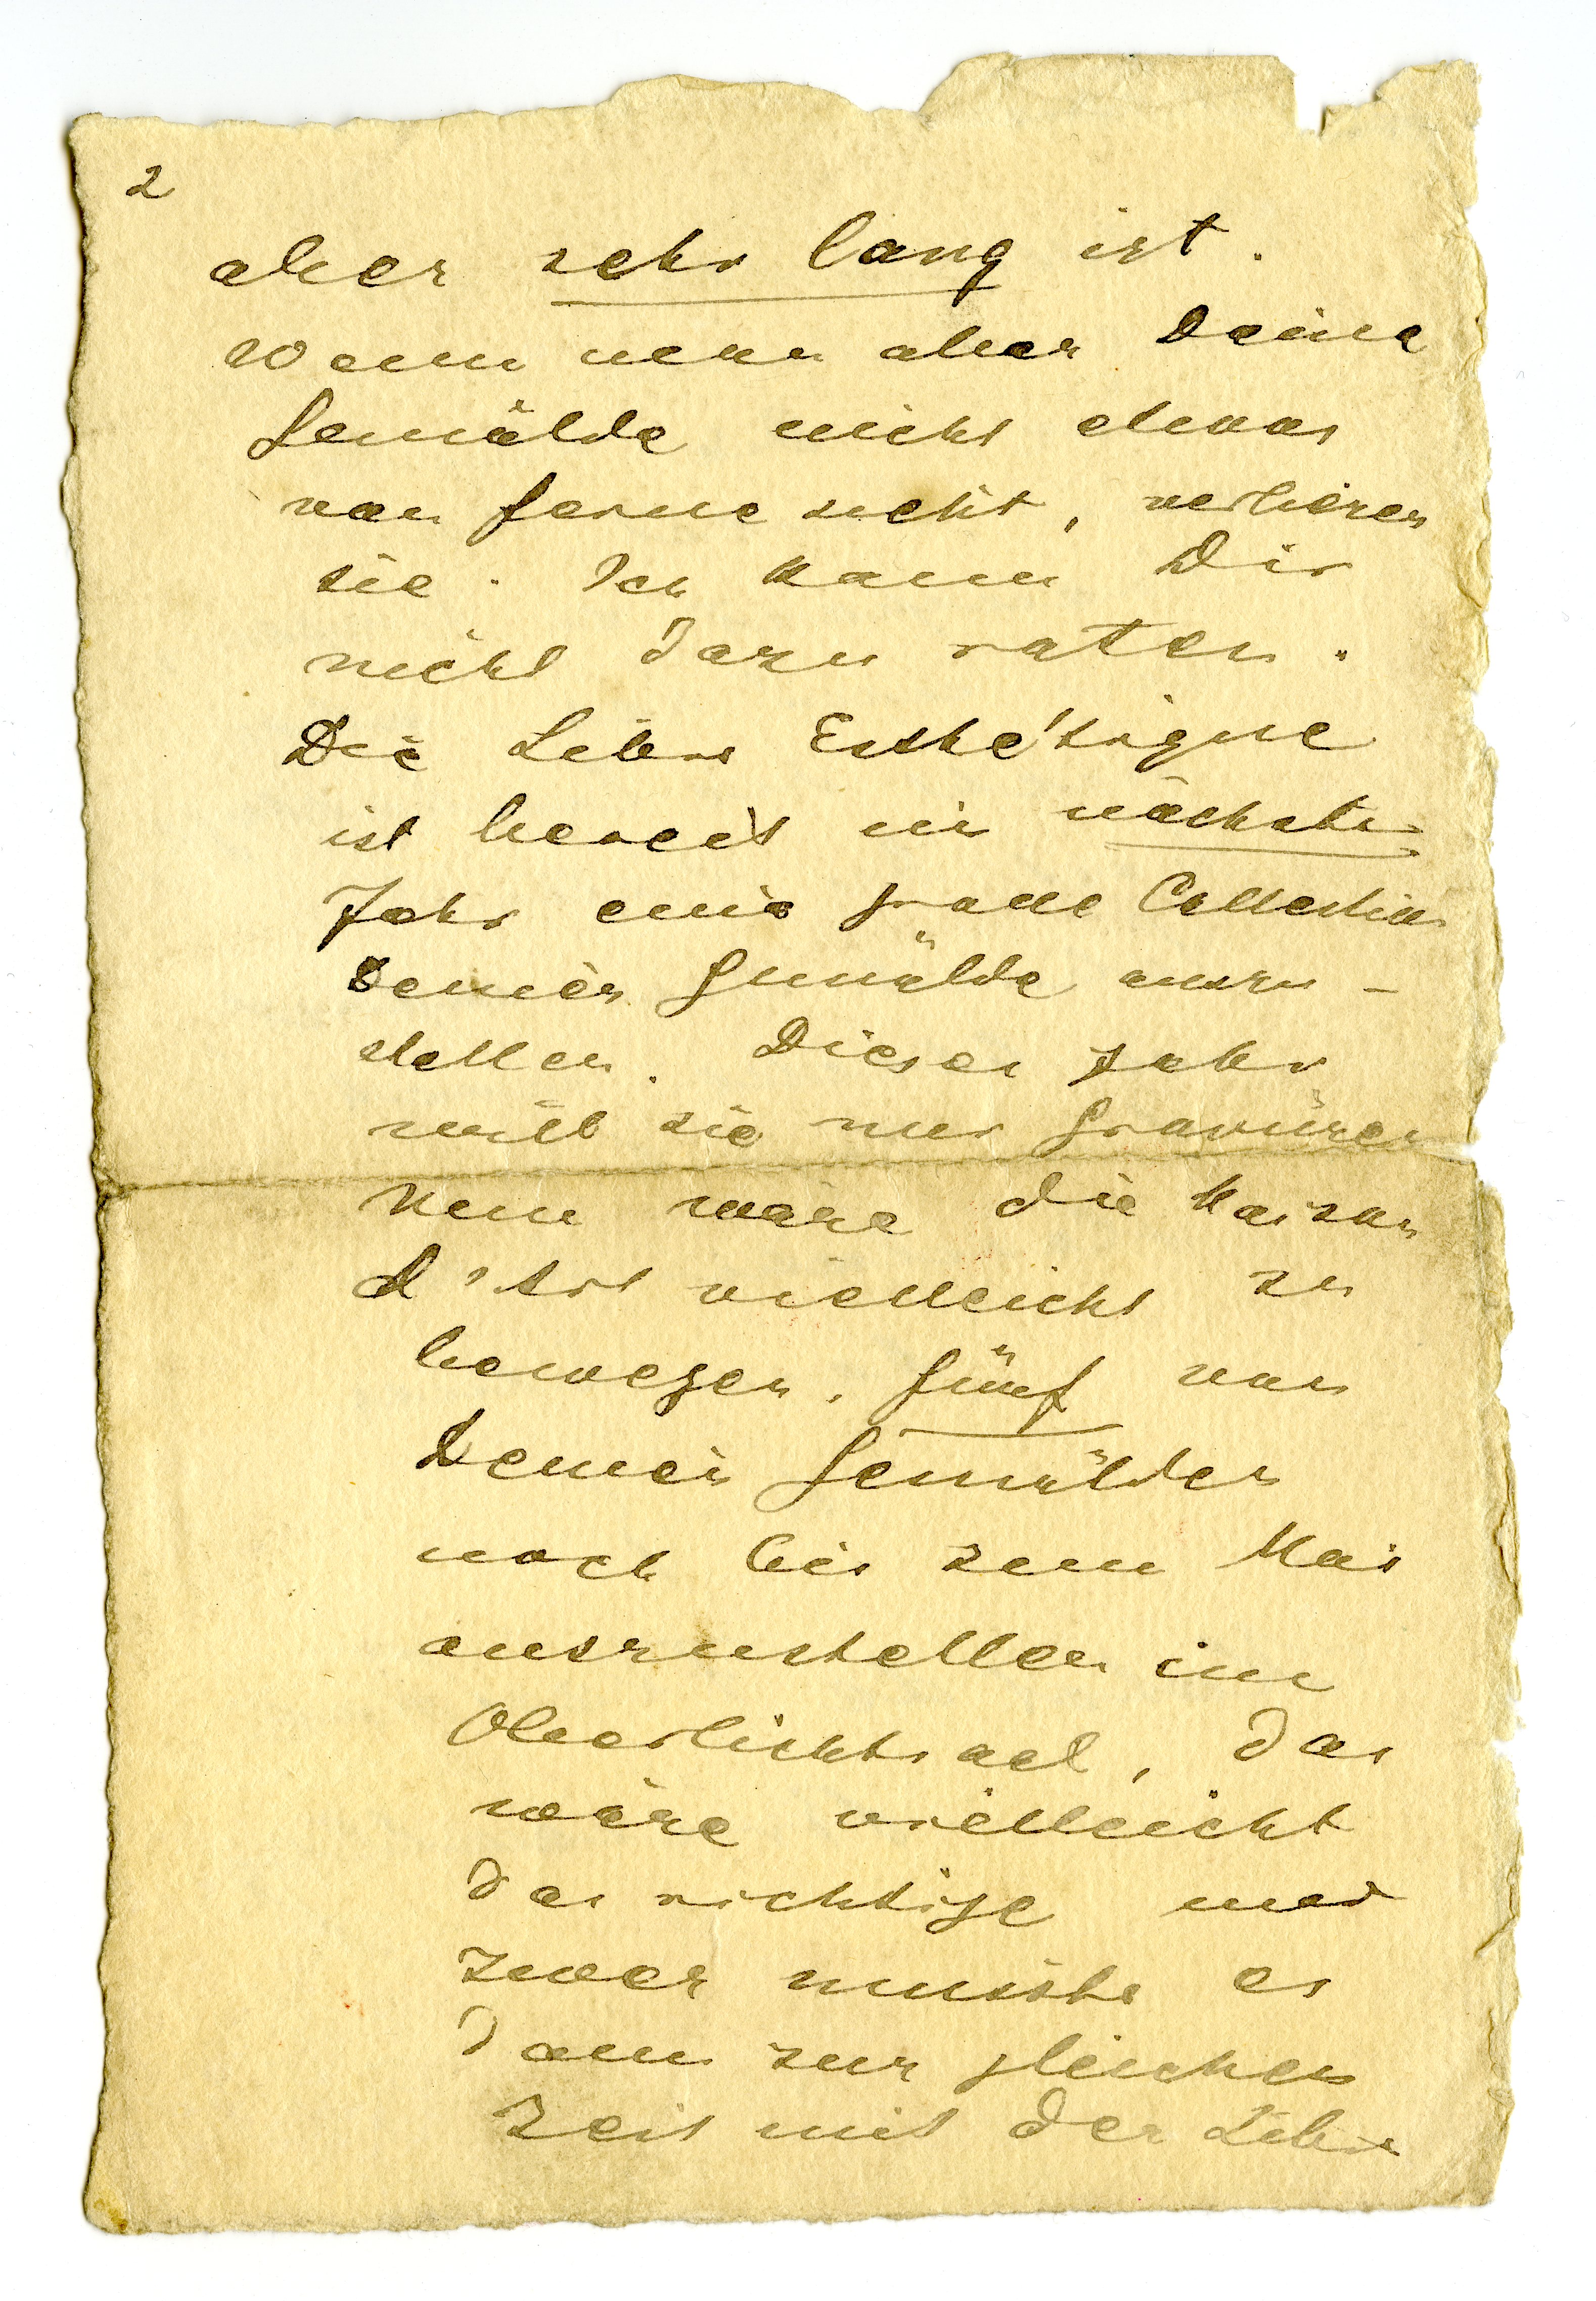 2
aber sehr lang ist.
Wenn man aber Deine
Gemälde nicht etwas
von ferne sieht, verlieren
sie. Ich kann Dir
nicht dazu raten.
Die Libre Esthétique
ist bereit im nächsten
Jahr eine grosse Collection
Deiner Gemälde auszu-
stellen. Dieses Jahr
will sie nur Gravüren
Nun wäre die Maison
d'Art vielleicht zu
bewegen, fünf von
Deinen Gemälden
noch bis zum Mai
auszustellen im
Oberlichtsaal, das
wäre vielleicht
das richtige und
zwar müsste es
dann zur gleichen
Zeit mit der Libre